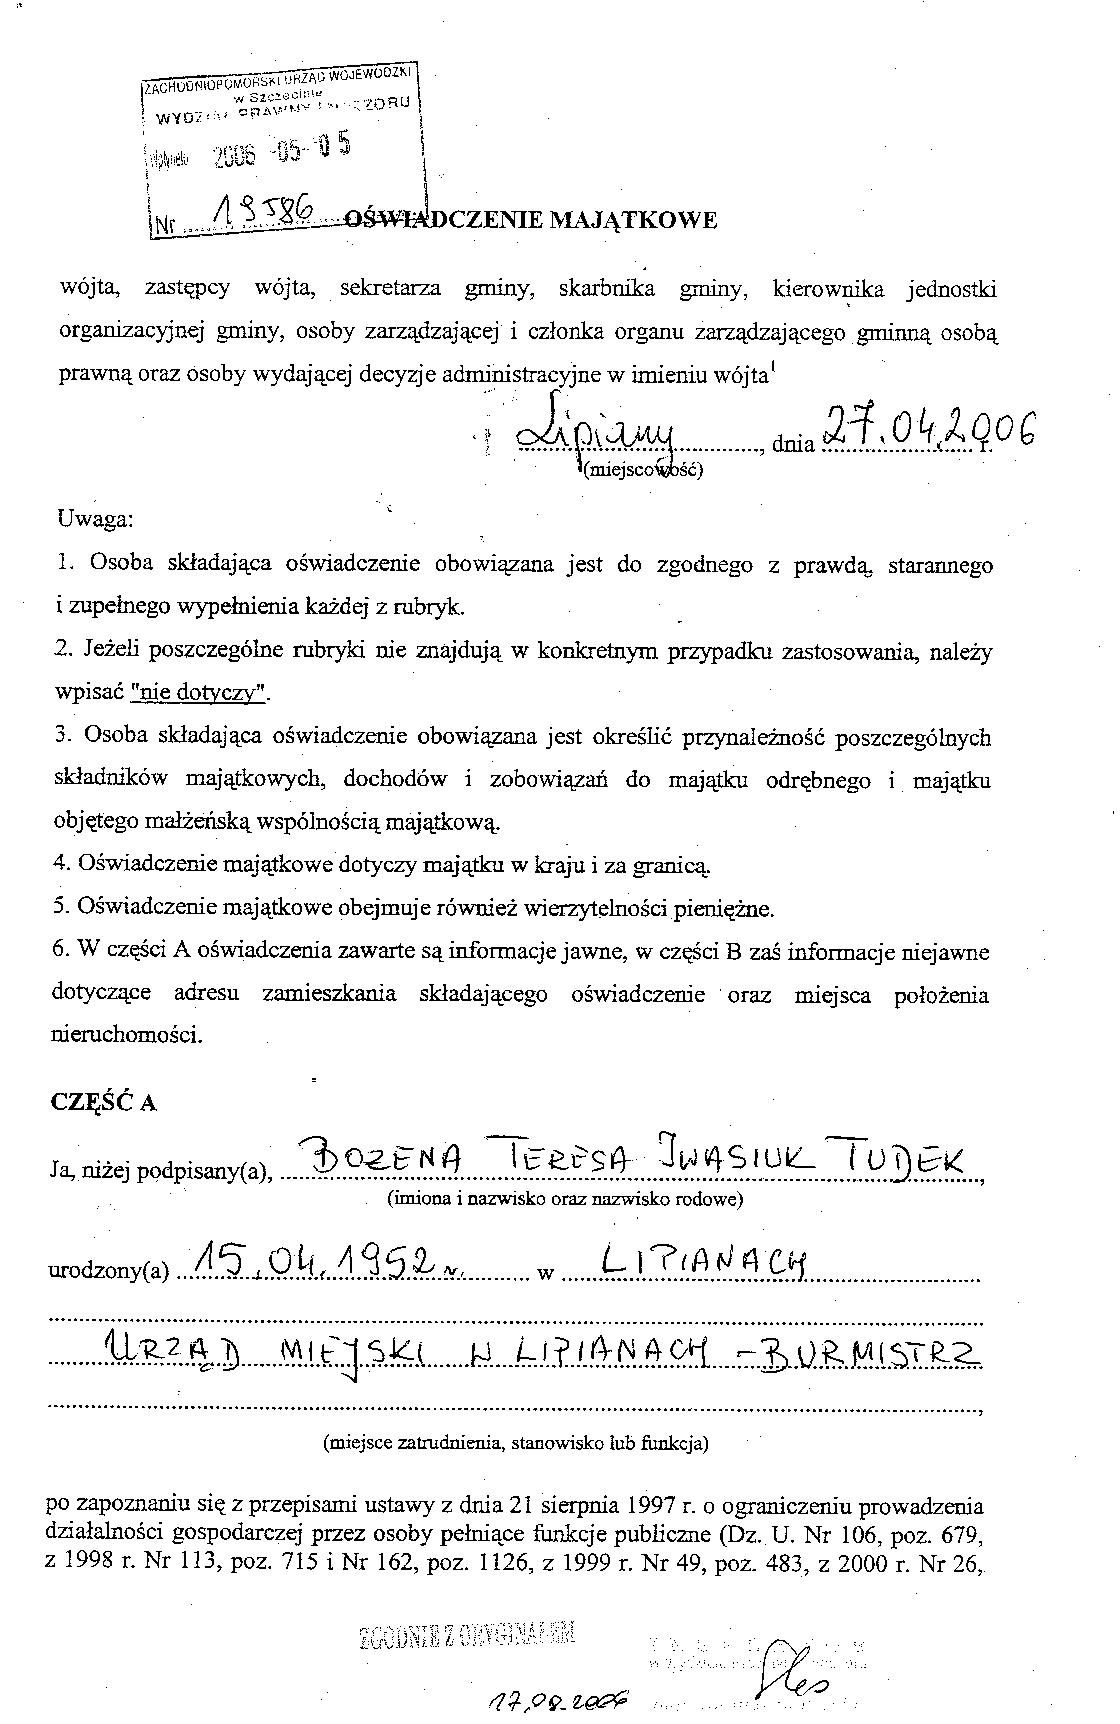 ZACHODNIOPOMORSKI URZĄD WOJEWÓDZKI
w Szczecinie
WYDZIAŁ PRAWNY I NADZORU
wpłynęło 2006 -05- 05
Nr 19586
OŚWIADCZENIE MAJĄTKOWE
wójta, zastępcy wójta, sekretarza gminy, skarbnika gminy, kierownika jednostki
organizacyjnej gminy, osoby zarządzającej i członka organu zarządzającego gminną osobą
prawną oraz osoby wydającej decyzje administracyjne w imieniu wójta¹
Lipiany, dnia 27.04.2006 r.
(miejscowość)
Uwaga:
1. Osoba składająca oświadczenie obowiązana jest do zgodnego z prawdą, starannego
i zupełnego wypełnienia każdej z rubryk.
2. Jeżeli poszczególne rubryki nie znajdują w konkretnym przypadku zastosowania, należy
wpisać "nie dotyczy".
3. Osoba składająca oświadczenie obowiązana jest określić przynależność poszczególnych
składników majątkowych, dochodów i zobowiązań do majątku odrębnego i majątku
objętego małżeńską wspólnością majątkową.
4. Oświadczenie majątkowe dotyczy majątku w kraju i za granicą.
5. Oświadczenie majątkowe obejmuje również wierzytelności pieniężne.
6. W części A oświadczenia zawarte są informacje jawne, w części B zaś informacje niejawne
dotyczące adresu zamieszkania składającego oświadczenie oraz miejsca położenia
nieruchomości.
CZĘŚĆ A
Ja, niżej podpisany(a), BOZENA TERESA IWASIUK TUDEK,
(imiona i nazwisko oraz nazwisko rodowe)
urodzony(a) 15.04.1952 r. w LIPIANACH
URZĄD MIEJSKI W LIPIANACH - BURMISTRZ
,
(miejsce zatrudnienia, stanowisko lub funkcja)
po zapoznaniu się z przepisami ustawy z dnia 21 sierpnia 1997 r. o ograniczeniu prowadzenia
działalności gospodarczej przez osoby pełniące funkcje publiczne (Dz. U. Nr 106, poz. 679,
z 1998 r. Nr 113, poz. 715 i Nr 162, poz. 1126, z 1999 r. Nr 49, poz. 483, z 2000 r. Nr 26,
ZGODNIE Z ORYGINAŁEM